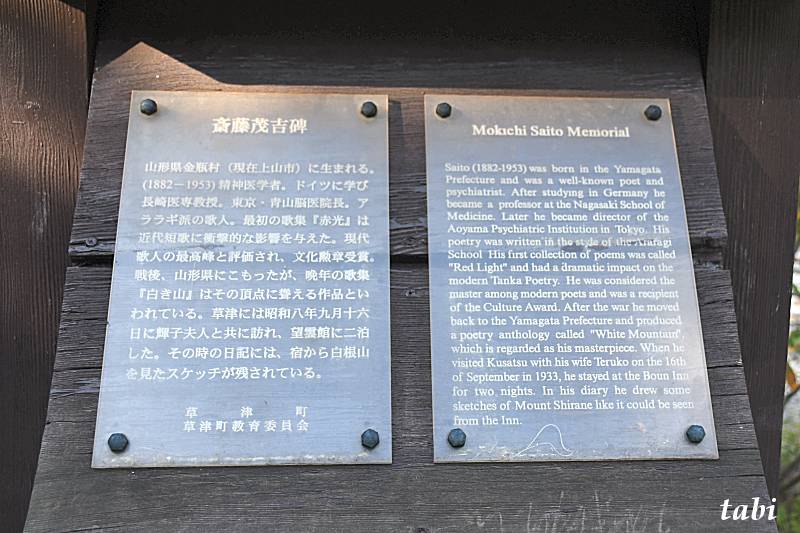 斎藤茂吉碑
山形県金瓶村（現在上山市）に生まれる。
(1882－1953) 精神医学者。ドイツに学び
長崎医専教授。東京・青山脳医院長。ア
ララギ派の歌人。最初の歌集『赤光』は
近代短歌に衝撃的な影響を与えた。現代
歌人の最高峰と評価され、文化勲章受賞。
戦後、山形県にこもったが、晩年の歌集
『白き山』はその頂点に聳える作品とい
われている。草津には昭和八年九月十六
日に輝子夫人と共に訪れ、望雲館に二泊
した。その時の日記には、宿から白根山
を見たスケッチが残されている。
草津町
草津町教育委員会
Mokichi Saito Memorial
Saito (1882-1953) was born in the Yamagata
Prefecture and was a well-known poet and
psychiatrist. After studying in Germany he
became a professor at the Nagasaki School of
Medicine. Later he became director of the
Aoyama Psychiatric Institution in Tokyo. His
poetry was written in the style of the Araragi
School His first collection of poems was called
"Red Light" and had a dramatic impact on the
modern Tanka Poetry. He was considered the
master among modern poets and was a recipient
of the Culture Award. After the war he moved
back to the Yamagata Prefecture and produced
a poetry anthology called "White Mountain",
which is regarded as his masterpiece. When he
visited Kusatsu with his wife Teruko on the 16th
of September in 1933, he stayed at the Boun Inn
for two nights. In his diary he drew some
sketches of Mount Shirane like it could be seen
from the Inn.
tabi